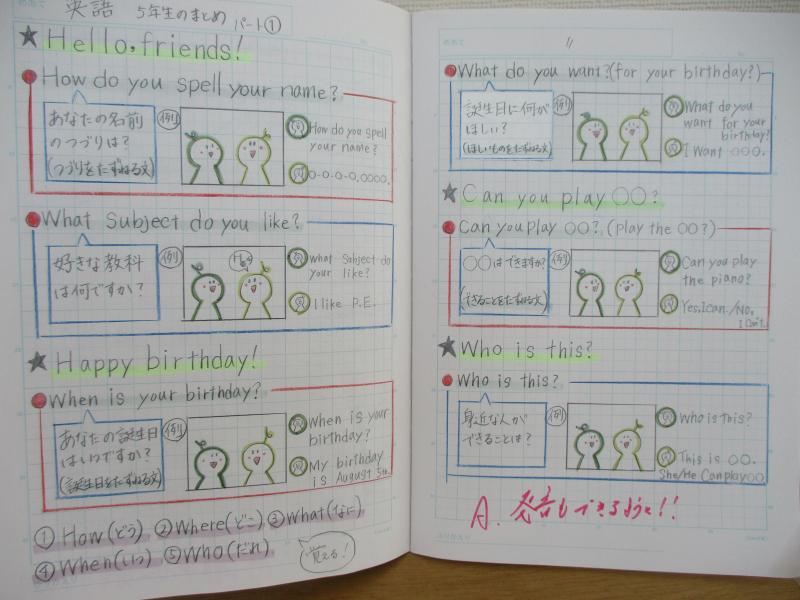 英語 5年生のまとめ パート①
★ Hello, friends!
How do you spell your name?
あなたの名前
のつづりは?
(つづりをたずねる文)
例
How do you spell
your name?
O-O-O-O,OOOO.
What Subject do you like?
好きな教科
は何ですか?
例
What Subject do
your like?
I like P.E.
★ Happy birthday!
When is your birthday?
あなたの誕生日
はいつですか?
(誕生日をたずねる文)
例
When is your
birthday?
My birthday
is August 5th.
①How(どう) ②Where(どこ) ③What(なに)
④When(いつ) ⑤Who(だれ)
覚える!
〃
What do you want?(for your birthday?)
誕生日に何が
ほしい?
(ほしいものをたずねる文)
例
What do you
want for your
birthday?
I Want ○○○.
★ Can you play ○○?
Can you Play ○○?, (play the ○○?)
○○はできますか?
(できることをたずねる文)
例
Can you play
the piano?
Yes,I can./No,
I Can't.
★ Who is this?
Who is this?
身近な人が
できることは?
例
Who is This?
This is ○○.
She/He Can play○○
A. 発言もできるように!!